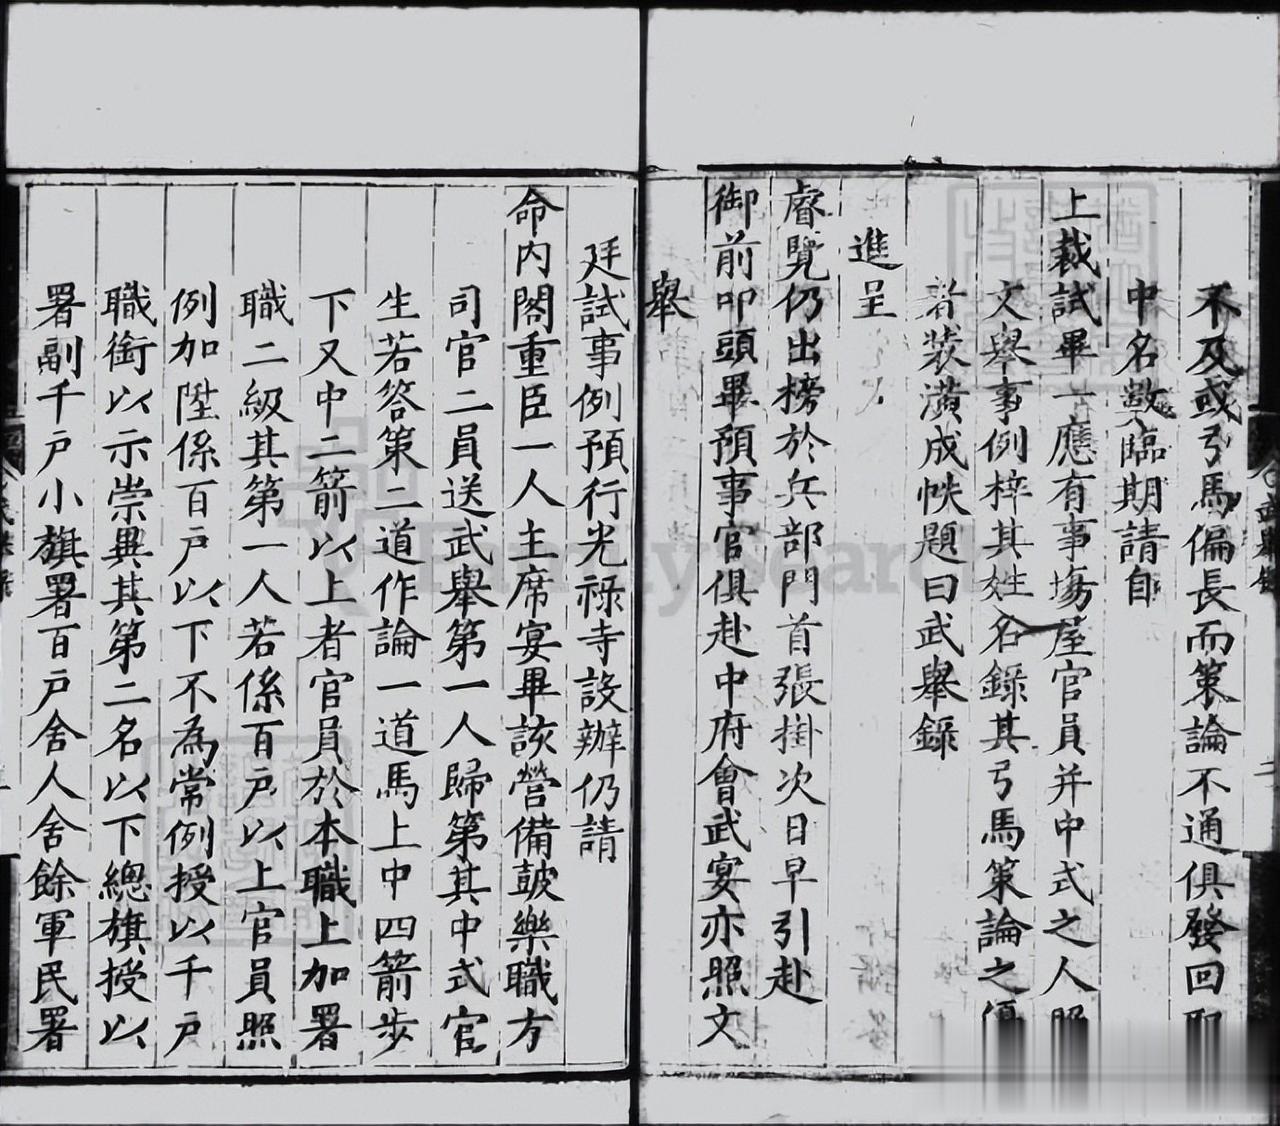 不及或弓馬偏長而策論不通俱發回
中名數臨期請自
上裁試畢一應有事場屋官員并中式之人照
文舉事例梓其姓名錄其弓馬策論之優
者裝潢成帙題曰武舉錄
進呈
睿覽仍出榜於兵部門首張掛次日早引赴
御前叩頭畢預事官俱赴中府會武宴亦照文
舉
廷試事例預行光祿寺設辦仍請
命內閣重臣一人主席宴畢該營備鼓樂職方
司官二員送武舉第一人歸第其中式官
生若答策二道作論一道馬上中四箭步
下又中二箭以上者官員於本職上加署
職二級其第一人若係百戶以上官員照
例加陞係百戶以下不為常例授以千戶
職銜以示崇異其第二名以下總旗授以
署副千戶小旗署百戶舍人舍餘軍民署
FamilySearch